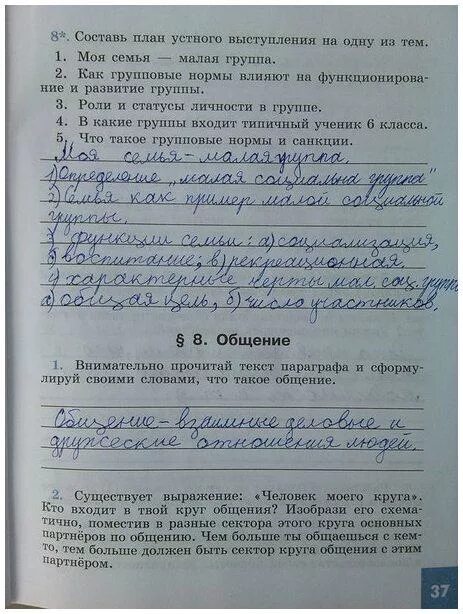 8*. Составь план устного выступления на одну из тем.
1. Моя семья — малая группа.
2. Как групповые нормы влияют на функционирова-
ние и развитие группы.
3. Роли и статусы личности в группе.
4. В какие группы входит типичный ученик 6 класса.
5. Что такое групповые нормы и санкции.
Моя семья - малая группа.
1) Определение "малая социальна группа"
2) Семья как пример малой социальной
группы.
3) функции семьи: а) социализация,
б) воспитание; в) рекреационная.
4) характерные черты мал. соц. групп
а) общая цель, б) число участников.
§ 8. Общение
1. Внимательно прочитай текст параграфа и сформу-
лируй своими словами, что такое общение.
Общение - взаимные деловые и
дружеские отношения людей.
2. Существует выражение: «Человек моего круга».
Кто входит в твой круг общения? Изобрази его схема-
тично, поместив в разные сектора этого круга основных
партнёров по общению. Чем больше ты общаешься с кем-
то, тем больше должен быть сектор круга общения с этим
партнёром.
37